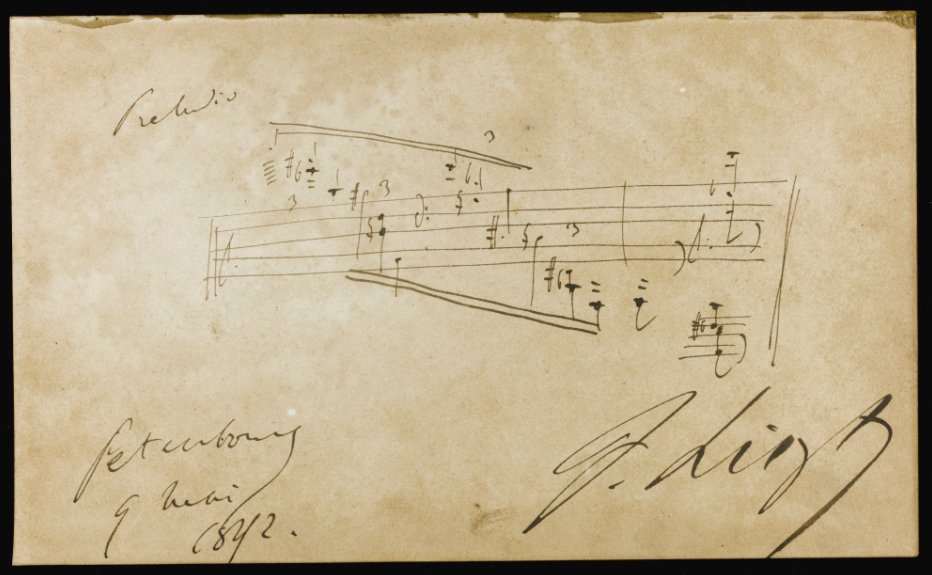 Preludio
3
3
3
3
Petersbourg
9 mai
1842.
F. Liszt